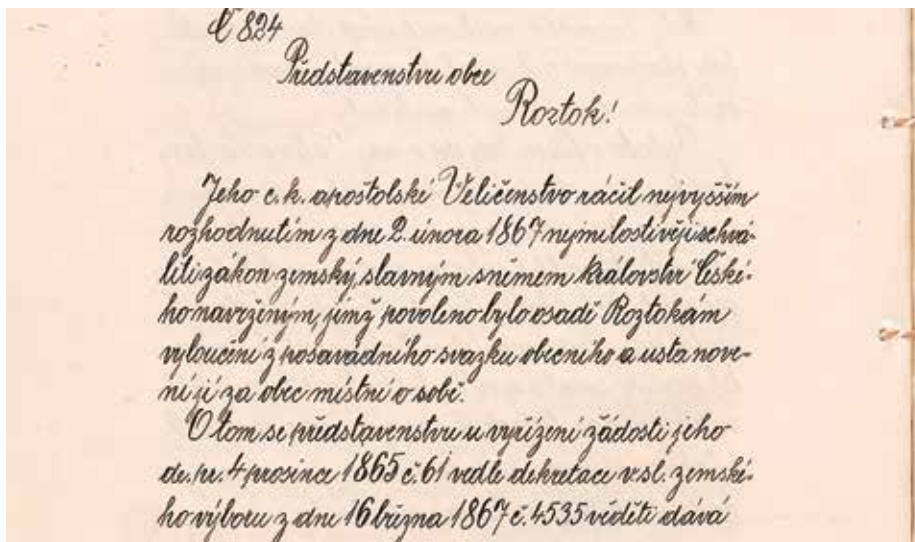 Č 824
Představenstvu obce
Roztok!
Jeho c. k. apoštolské Veličenstvo ráčil nejvyšším
rozhodnutím z dne 2. února 1867 nejmilostivěji schvá-
liti zákon zemský, slavným sněmem Království Česke-
ho navrženým, jímž povoleno bylo osadě Roztokám
vyloučení z posavádního svazku obecního a ustanove-
ní jí za obec místní o sobě.
O tom se představenstvu u vyřízení žádosti jeho
de. pr. 4 prosince 1865 č. 61 vedle dekretace v. sl. zemské-
ho výboru z dne 16 března 1867 č. 4535 věděti dává